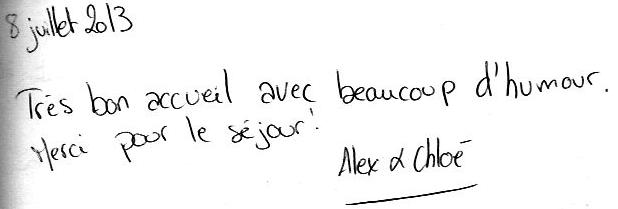 8 juillet 2013
Très bon accueil avec beaucoup d'humour.
Merci pour le séjour!
Alex & Chloé